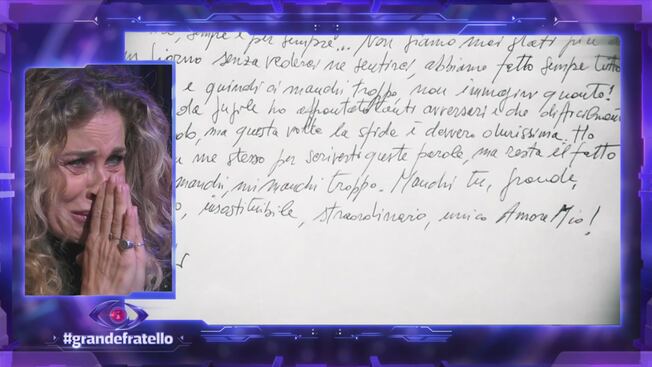 , sempre e per sempre... Non siamo mai stati più di
un giorno senza vederci ne sentirci, abbiamo fatto sempre tutto
e quindi ci manchi troppo, non immagini quanto!
da Jugole ho affrontato tanti avversari e che difficilmente
, ma questa volta la sfida è davvero durissima. Ho
me stesso per scriverti queste parole, ma resta il fatto
manchi, mi manchi troppo. Manchi tu, grande,
, insostituibile, straordinario, unico Amore Mio!
#grandefratello